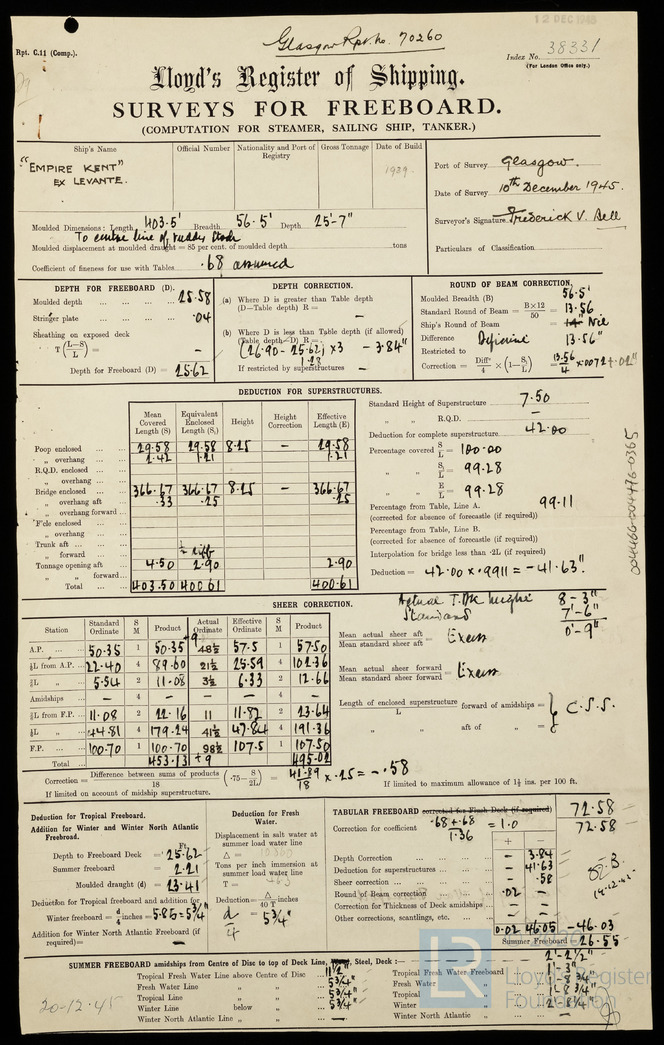 12 DEC 1945
Glasgow Rpt. No. 70260
Rpt. C.11 (Comp.).
Index No. 38331
(For London Office only.)
Lloyd's Register of Shipping.
SURVEYS FOR FREEBOARD.
(COMPUTATION FOR STEAMER, SAILING SHIP, TANKER.)
Ship's Name Official Number Nationality and Port of Registry Gross Tonnage Date of Build
"EMPIRE KENT"
EX LEVANTE.
1939
Port of Survey Glasgow.
Date of Survey 10th December 1945.
Surveyor's Signature Frederick V. Bell
Particulars of Classification
Moulded Dimensions: Length 403.5' Breadth 56.5' Depth 25'-7"
To centre line of rudder stock
Moulded displacement at moulded draught = 85 per cent. of moulded depth tons
Coefficient of fineness for use with Tables .68 assumed
DEPTH FOR FREEBOARD (D).
Moulded depth 25.58
Stringer plate .04
Sheathing on exposed deck
T (L-S/L) = -
Depth for Freeboard (D) = 25.62
DEPTH CORRECTION.
(a) Where D is greater than Table depth
(D-Table depth) R = -
(b) Where D is less than Table depth (if allowed)
(Table depth-D) R =
(26.90 - 25.62) x 3 - 3.84"
1.28
If restricted by superstructures -
ROUND OF BEAM CORRECTION.
Moulded Breadth (B) 56.5'
Standard Round of Beam = B×12/50 = 13.56
Ship's Round of Beam = Nil
Difference Deficient 13.56"
Restricted to
Correction = Diff/4 × (1-S₁/L) = 13.56/4 × .0072 + .02"
DEDUCTION FOR SUPERSTRUCTURES.
Mean Covered Length (S) Equivalent Enclosed Length (S₁) Height Height Correction Effective Length (E)
Poop enclosed 29.58 29.58 8.25 - 29.58
" overhang 2.42 1.21 1.21
R.Q.D. enclosed
" overhang
Bridge enclosed 366.67 366.67 8.25 - 366.67
" overhang aft .33 .25 .25
" overhang forward
F'cle enclosed
" overhang
Trunk aft
" forward ½ diff
Tonnage opening aft 4.50 2.90 2.90
" " forward
Total 403.50 400.61 400.61
Standard Height of Superstructure 7.50
" " R.Q.D. -
Deduction for complete superstructure 42.00
Percentage covered S/L = 100.00
" " S₁/L = 99.28
" " E/L = 99.28
Percentage from Table, Line A. 99.11
(corrected for absence of forecastle (if required))
Percentage from Table, Line B.
(corrected for absence of forecastle (if required))
Interpolation for bridge less than .2L (if required)
Deduction = 42.00 x .9911 = -41.63".
004466-004476-0365
SHEER CORRECTION.
Station Standard Ordinate S M Product Actual Ordinate Effective Ordinate S M Product
+9
A.P. 50.35 1 50.35 48½ 57.5 1 57.50
⅙L from A.P. 22.40 4 89.60 21½ 25.59 4 102.36
⅓L " 5.54 2 11.08 3½ 6.33 2 12.66
Amidships - 4 - - - 4 -
⅓L from F.P. 11.08 2 22.16 11 11.82 2 23.64
⅙L " 44.81 4 179.24 41½ 47.84 4 191.36
F.P. 100.70 1 100.70 98½ 107.5 1 107.50
Total 453.13 +9 495.02
Actual T. Dk height 8 - 3"
Standard 7' - 6"
0' - 9"
Mean actual sheer aft
Mean standard sheer aft = Excess
Mean actual sheer forward
Mean standard sheer forward = Excess
Length of enclosed superstructure forward of amidships =
L
" " aft of " =
C.S.S.
Correction = Difference between sums of products/18 (.75-S/2L) = 41.89/18 x .25 = -.58
If limited on account of midship superstructure.
If limited to maximum allowance of 1½ ins. per 100 ft.
Deduction for Tropical Freeboard.
Addition for Winter and Winter North Atlantic Freeboard.
Ft.
Depth to Freeboard Deck = 25.62
Summer freeboard = 2.21
Moulded draught (d) = 23.41
Deduction for Tropical freeboard and addition for
Winter freeboard = d/4 inches = 5.85 = 5¾"
Addition for Winter North Atlantic Freeboard (if required) = -
Deduction for Fresh Water.
Displacement in salt water at summer load water line
Δ =
Tons per inch immersion at summer load water line
T =
Deduction = Δ/40 T inches
= d/4 = 5¾"
TABULAR FREEBOARD corrected for Flush Deck (if required) 72.58
Correction for coefficient .68 + .68/1.36 = 1.0 72.58
+ -
Depth Correction - 3.84
Deduction for superstructures - 41.63
Sheer correction - .58
Round of Beam correction .02 -
Correction for Thickness of Deck amidships - -
Other corrections, scantlings, etc. - -
0.02 46.05 -46.03
Summer Freeboard = 26.55
SUMMER FREEBOARD amidships from Centre of Disc to top of Deck Line, Steel, Deck:— 2'-2½"
Tropical Fresh Water Line above Centre of Disc 11½"
Fresh Water Line " " 5¾"
Tropical Line " " 5¾"
Winter Line below " 5¾"
Winter North Atlantic Line " " -
Tropical Fresh Water Freeboard 1'-3"
Fresh Water " 1'-8¾"
Tropical " 1'-8¾"
Winter " 2'-8¼"
Winter North Atlantic " -
20-12-45
LR
Lloyd's Register
Foundation